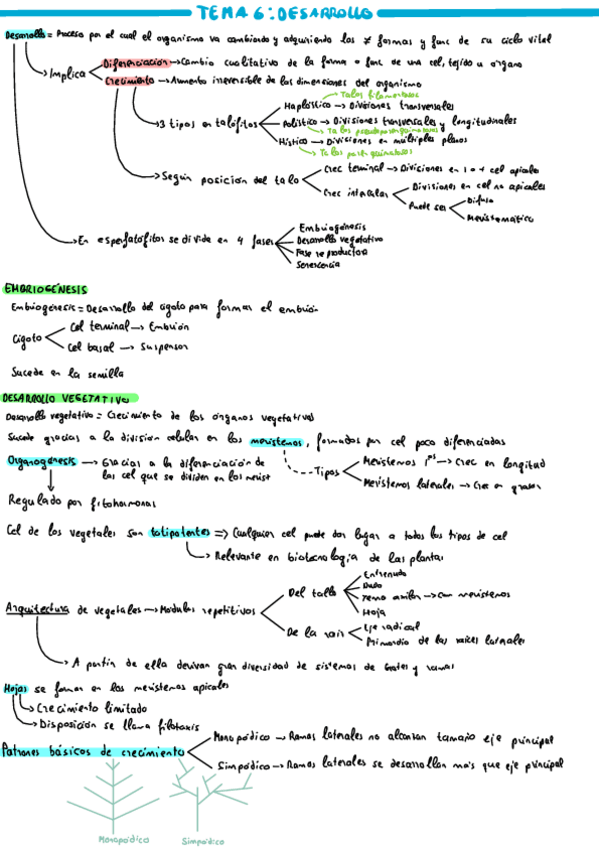 TEMA 6: DESARROLLO
Desarrollo = Proceso por el cual el organismo va cambiando y adquiriendo las ≠ formas y func de su ciclo vital
Implica
Diferenciación → Cambio cualitativo de la forma o func de una cel, tejido u órgano
Crecimiento → Aumento irreversible de las dimensiones del organismo
3 tipos en talofitos
Talos filamentosos
Haplóstico → Divisiones transversales
Polístico → Divisiones transversales y longitudinales
Talos pseudoparenquimatosos
Hístico → Divisiones en múltiples planos
Talos parenquimatosos
Según posición del talo
Crec terminal → Divisiones en 1 o + cel apicales
Crec intercalar
Divisiones en cel no apicales
Puede ser
Difuso
Meristemático
En espermatófitos se divide en 4 fases
Embriogénesis
Desarrollo vegetativo
Fase reproductora
Senescencia
EMBRIOGÉNESIS
Embriogénesis = Desarrollo del cigoto para formar el embrión
Cigoto
Cel terminal → Embrión
Cel basal → Suspensor
Sucede en la semilla
DESARROLLO VEGETATIVO
Desarrollo vegetativo = Crecimiento de los órganos vegetativos
Sucede gracias a la división celular en los meristemos, formados por cel poco diferenciadas
Organogénesis → Gracias a la diferenciación de las cel que se dividen en los merist
Tipos
Meristemos 1ᵒˢ → Crec en longitud
Meristemos laterales → Crec en grosor
Regulado por fitohormonas
Cel de los vegetales son totipotentes => Cualquier cel puede dar lugar a todos los tipos de cel
Relevante en biotecnología de las plantas
Arquitectura de vegetales → Módulos repetitivos
Del tallo
Entrenudo
Nudo
Yema axilar → Con meristemos
Hoja
De la raíz
Eje radical
Primordio de las raíces laterales
A partir de ella derivan gran diversidad de sistemas de brotes y ramas
Hojas se forman en los meristemos apicales
Crecimiento limitado
Disposición se llama filotaxis
Patrones básicos de crecimiento
Monopódico → Ramas laterales no alcanzan tamaño eje principal
Simpódico → Ramas laterales se desarrollan más que eje principal
Monopódico
Simpódico